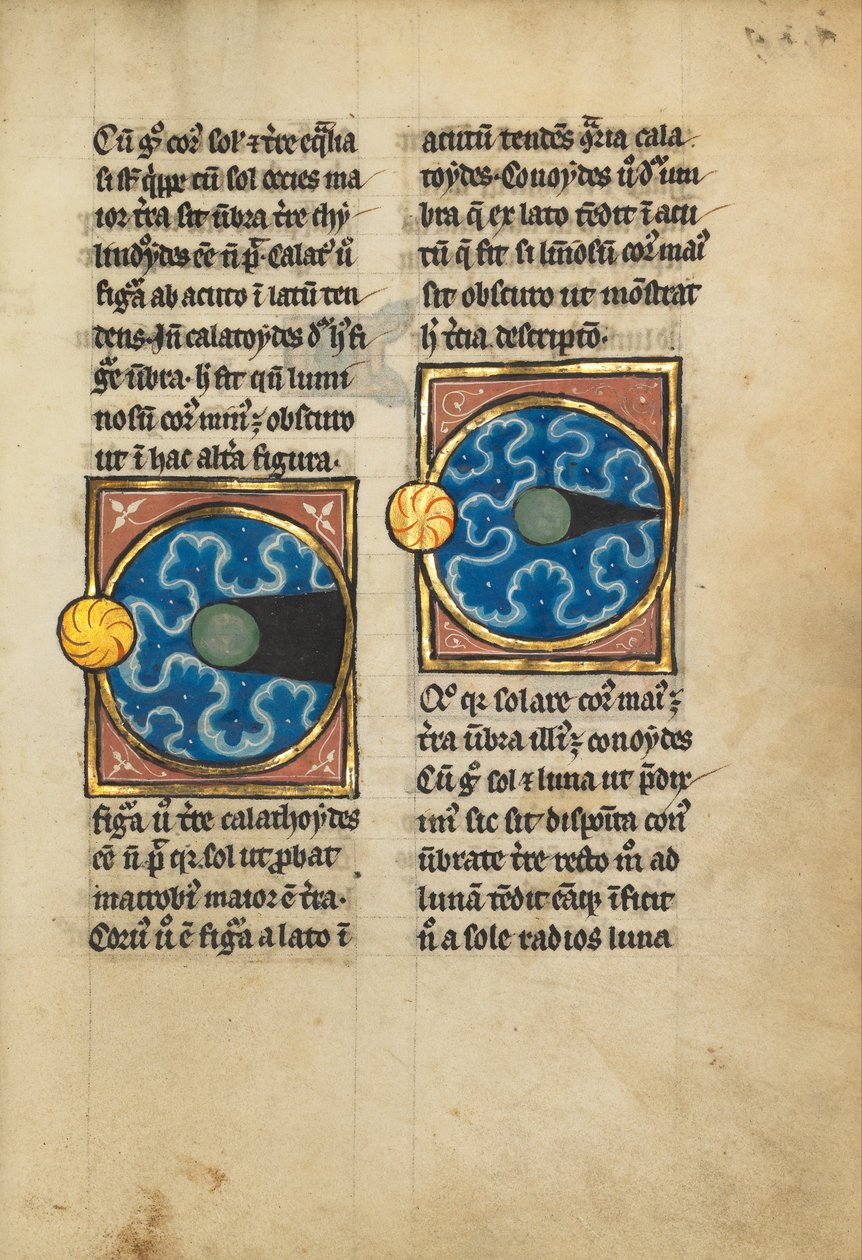 Cū g° cor⁹ sol' ⁊ t̄re eq̄lia
si st̄ q̄ppe cū sol occies ma
ior t̄ra sit ūbra t̄re chy
lindoydes eē ñ p̄t. Calat⁹ ů
figᵃ ab acuto ī latū ten
dens. Iñ calatoydes dᵃ h⁹ fi
gᵉ ūbra. h̄ fit qñ lumi
nosū cor⁹ min⁹ ē obscuro
ut ī hac alt̄a figura.
figᵃ ů t̄re calathoydes
eē ñ p̄t qꝛ sol ut ꝓbat
macrobi⁹ maior ē t̄ra.
Con⁹ ů ē figᵃ a lato ī
acutū tendēs 9ᵃria cala
toydes. Conoydes ů dᵃ um
bra q̄ ex lato tēdit ī acu
tū q̄ fit si lūīosū cor⁹ mai⁹
sit obscuro ut mōstrat
h̄ t̄cia descriptō.
qꝛ solare cor⁹ mai⁹ ē
t̄ra ūbra illi⁹ ē conoydes
Cū g° sol ⁊ luna ut p̄dix
im⁹ sic sit disposita con⁹
ūbrate t̄re recto m° ad
lunā tēdit eāqꝫ īficit
ů a sole radios luna